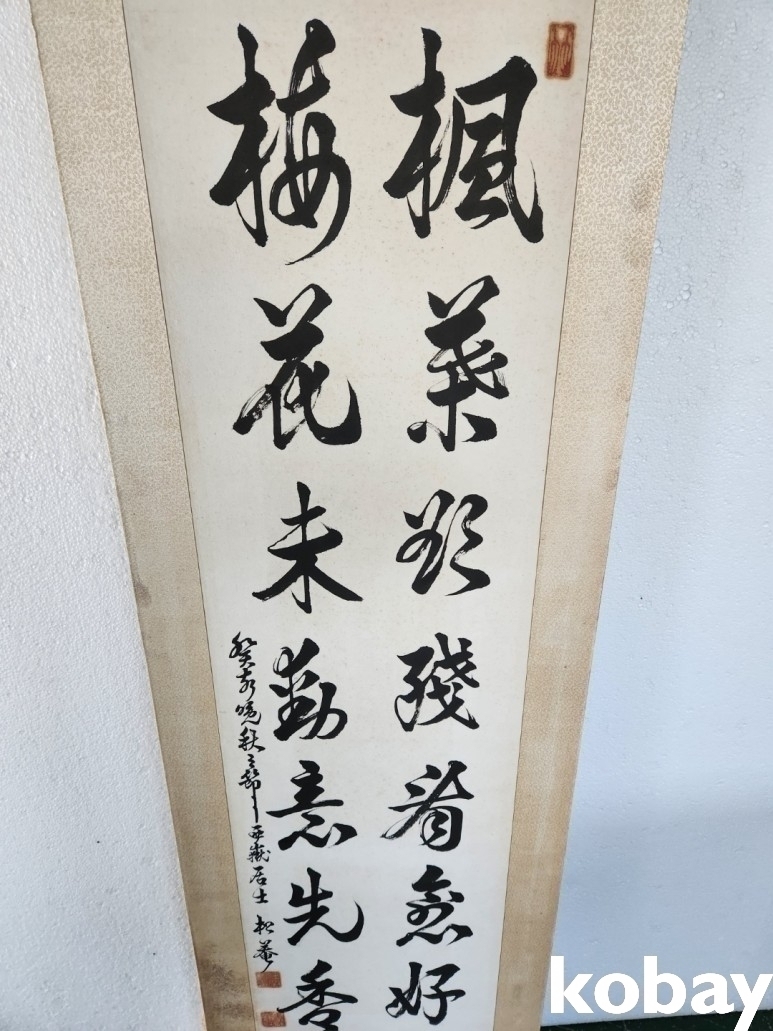 楓葉欲殘看愈好
梅花未動意先香
癸亥晩秋之節西巖居士 松菴
kobay